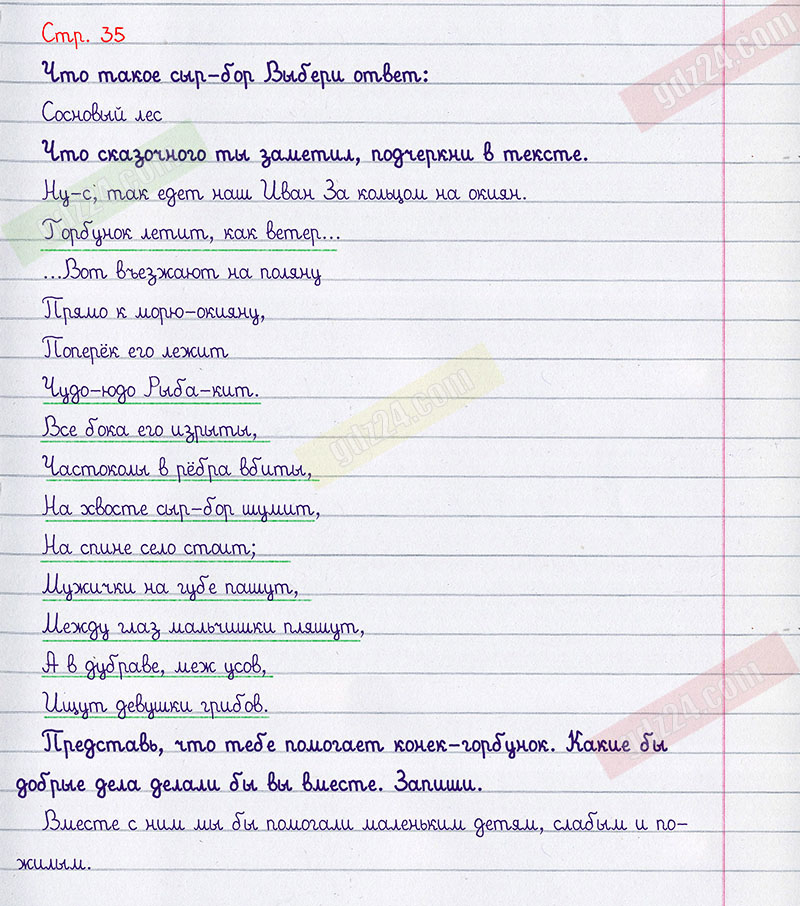 Стр. 35
Что такое сыр-бор Выбери ответ:
Сосновый лес
Что сказочного ты заметил, подчеркни в тексте.
Ну-с, так едет наш Иван За кольцом на окиян.
Горбунок летит, как ветер...
...Вот въезжают на поляну
Прямо к морю-окияну,
Поперёк его лежит
Чудо-юдо Рыба-кит.
Все бока его изрыты,
Частоколы в рёбра вбиты,
На хвосте сыр-бор шумит,
На спине село стоит;
Мужички на губе пашут,
Между глаз мальчишки пляшут,
А в дубраве, меж усов,
Ищут девушки грибов.
Представь, что тебе помогает конек-горбунок. Какие бы
добрые дела делали бы вы вместе. Запиши.
Вместе с ним мы бы помогали маленьким детям, слабым и по-
жилым.
gdz24.com
gdz24.com
gdz24.com
gdz24.com